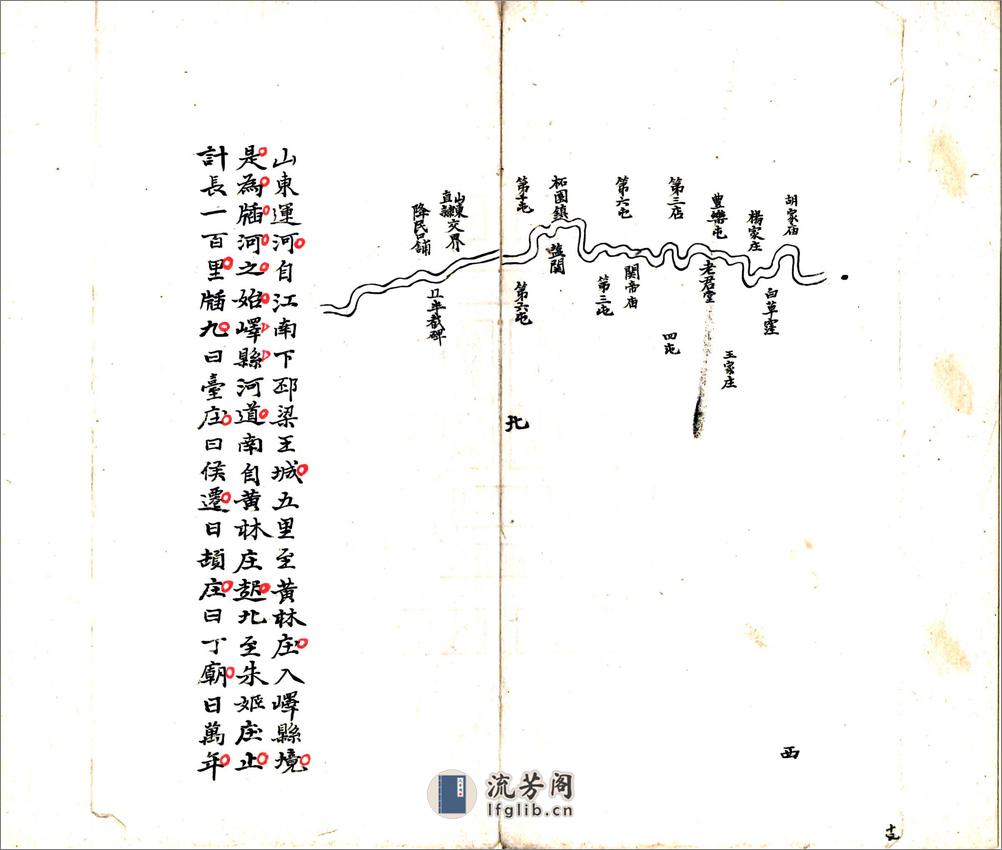 胡家庙
楊家庄
豊樂屯
第三店
第六屯
柘園鎮
山東
直隸交界
降民口鋪
白草窪
老君堂
王家庄
關帝庙
四屯
第三屯
鹽關
第六屯
北
西
山東運河自江南下邳梁王城五里至黄林庄入嶧縣境
是為牐河之始嶧縣河道南自黄林庄起北至朱姬庄止
計長一百里牐九曰臺庄曰侯遷曰頓庄曰丁廟曰萬年
流芳阁
lfglib.cn